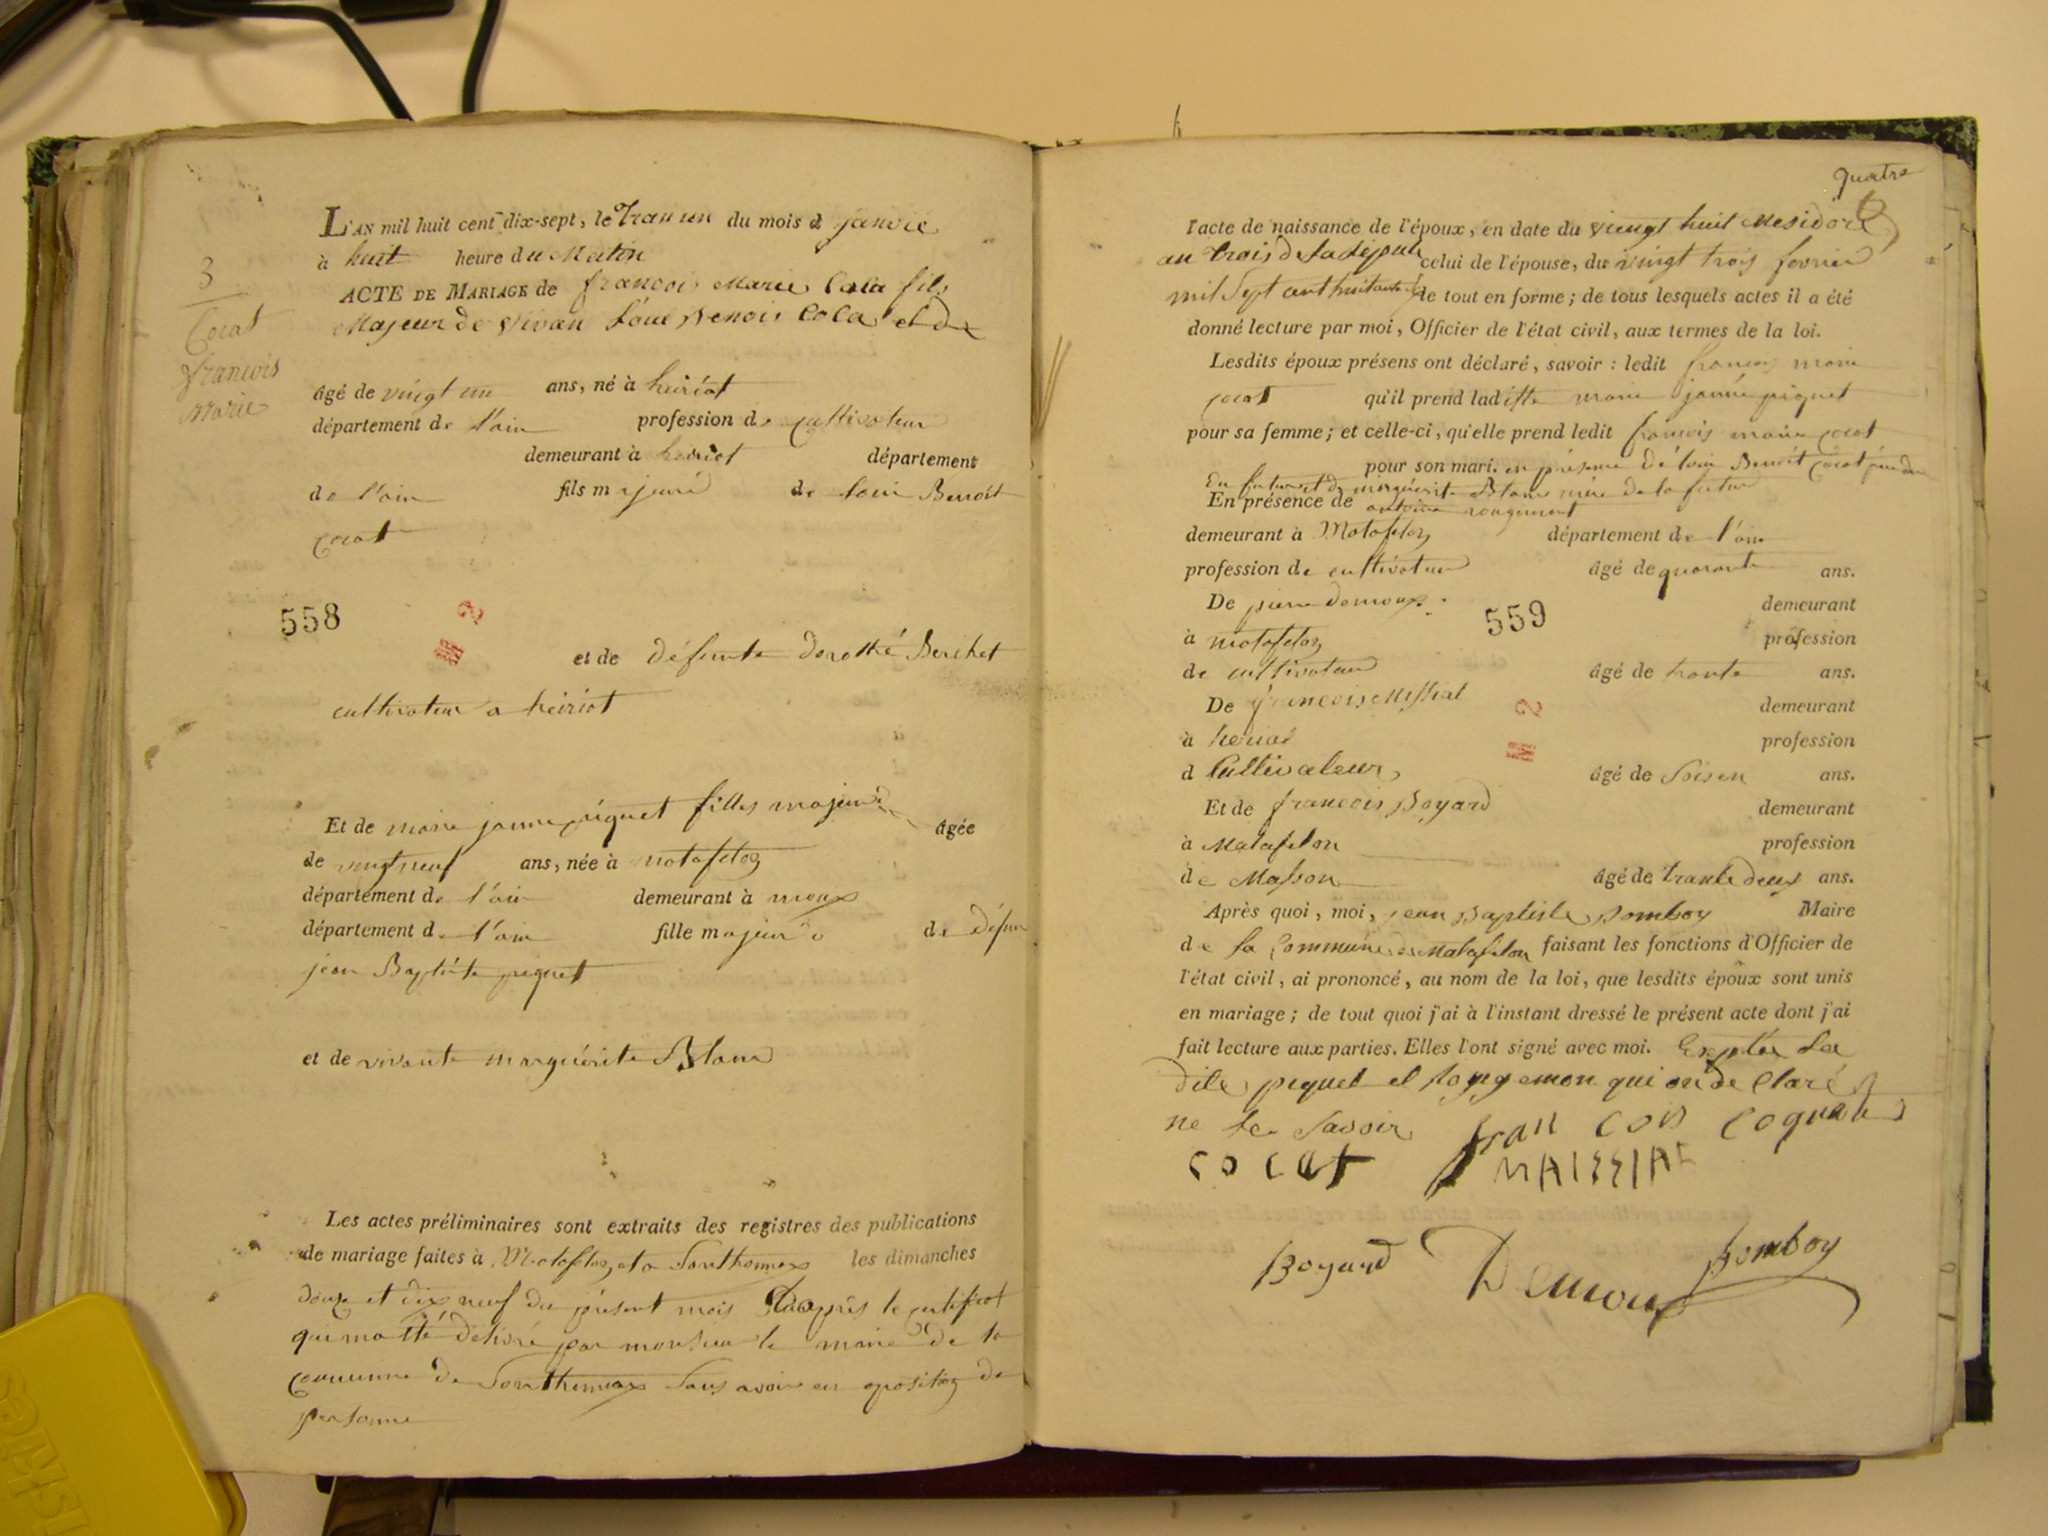 3
Cocat
francois
marie
L'AN mil huit cent dix-sept, le Tran un du mois d janvié
à huit heure du Matin
ACTE DE MARIAGE de francois Marie Cola fils
Majeur de vivan Loui Benois Cola et de
âgé de vingt un ans, né à heiriat
département de l'ain profession de cultivateur
demeurant à heiriat département
de l'ain fils majeure de loui Benoit
Cocat
558
et de défunte dorothé Berchet
cultivateur a heiriat
Et de marie janne piquet filles majeure âgée
de vingt neuf ans, née à matafelon
département de l'ain demeurant à
département de l'ain fille majeure de défun
jean Baptiste piquet
et de vivante marguérite Blanc
Les actes préliminaires sont extraits des registres des publications
de mariage faites à Matafelon, et a Sonthonnax les dimanches
douze et dix neuf du présent mois d'après le certificat
qui ma été délivré par monsieur le maire de la
commune de Sonthonnax sans avoir eu opositon de
personne
quatre
l'acte de naissance de l'époux, en date du vingt huit Mesidore
an trois de la répub celui de l'épouse, du vingt trois fevrier
mil sept cent huitante le tout en forme ; de tous lesquels actes il a été
donné lecture par moi, Officier de l'état civil, aux termes de la loi.
Lesdits époux présens ont déclaré, savoir : ledit francois marie
cocat qu'il prend laditte marie janne piquet
pour sa femme ; et celle-ci, qu'elle prend ledit francois marie cocat
pour son mari. en présence de louis Benoit Cocat père du
du futur et de marguérite Blanc mère de la futur
En présence de antoine rougemont
demeurant à Matafelon département de l'ain
profession de cultivateur âgé de quarante ans.
De pierre demoux demeurant
559
à matafelon profession
de cultivateur âgé de trante ans.
De francois Missiat demeurant
à heriat profession
d Cultivateur âgé de Soisen ans.
Et de francois Boyard demeurant
à Matafelon profession
de Masson âgé de trante deux ans.
Après quoi, moi, jean Baptiste Bomboy Maire
de la Commune de Matafelon faisant les fonctions d'Officier de
l'état civil, ai prononcé, au nom de la loi, que lesdits époux sont unis
en mariage ; de tout quoi j'ai à l'instant dressé le présent acte dont j'ai
fait lecture aux parties. Elles l'ont signé avec moi. Exepter la
dite piquet et Rougemon qui on de Claré
ne le Savoir fran cois coquat
cocat MAISSIAT
Boyard Demoux Bomboy